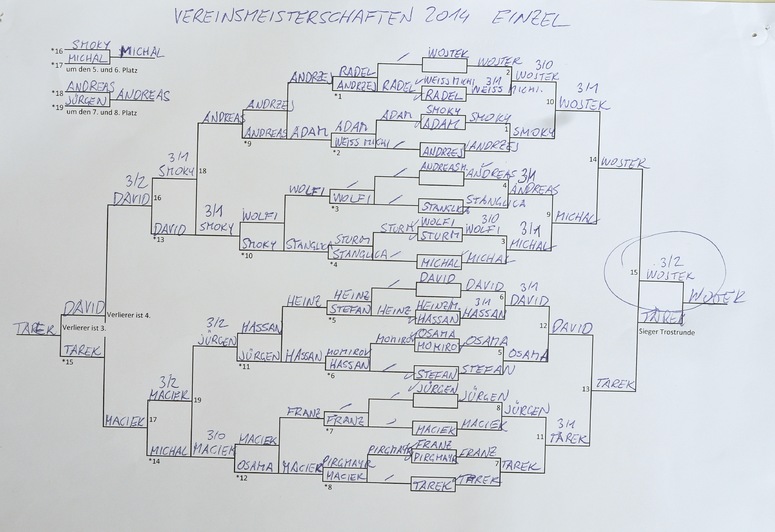 VEREINSMEISTERSCHAFTEN 2014 EINZEL
*16 SMOKY MICHAL
*17 MICHAL
um den 5. und 6. Platz
*18 ANDREAS ANDREAS
*19 JÜRGEN
um den 7. und 8. Platz
WOJTEK WOJTEK 3/0
RADEL WEISS MICHI 3/1 2 WOJTEK 3/1
ANDRZEJ RADEL RADEL WEISS MICHI. WOJTEK
ANDRZEJ *1 10
ANDRZEJ ADAM SMOKY SMOKY
ANDREAS ADAM ADAM 1 SMOKY
ANDREAS ADAM WEISS MICHI ANDRZEJ ANDRZEJ
*9 *2 14 WOJTEK
3/1 18 ANDREAS 3/1
SMOKY WOLFI 4 ANDREAS
3/2 16 *3 STANGLICA STANGLICA 9 MICHAL
DAVID 3/1 WOLFI STURM WOLFI 3/0 WOLFI 3/1
DAVID SMOKY STURM STURM 3 MICHAL
*13 SMOKY STANGLICA STANGLICA MICHAL MICHAL
*10 *4 15 3/2
WOJTEK WOJTEK
DAVID DAVID 3/1
HEINZ HEINZ HEINZ M. 3/1 6 DAVID TAREK
DAVID Verlierer ist 4. STEFAN HEINZ HASSAN HASSAN 12 DAVID Sieger Trostrunde
TAREK Verlierer ist 3. 3/2 HASSAN *5 OSAMA
TAREK JÜRGEN MOMIROV MOMIROV MOMIROV OSAMA 5 OSAMA
*15 JÜRGEN HASSAN HASSAN STEFAN STEFAN
*11 *6 13 TAREK
3/2 JÜRGEN JÜRGEN
MACIEK 19 FRANZ 8 JÜRGEN
MACIEK 17 FRANZ *7 MACIEK MACIEK 3/1
3/0 MACIEK FRANZ 11 TAREK
MICHAL MACIEK PIRGMAYR PIRGMAYR PIRGMAYR FRANZ
*14 OSAMA MACIEK MACIEK 7 TAREK
*12 *8 TAREK TAREK